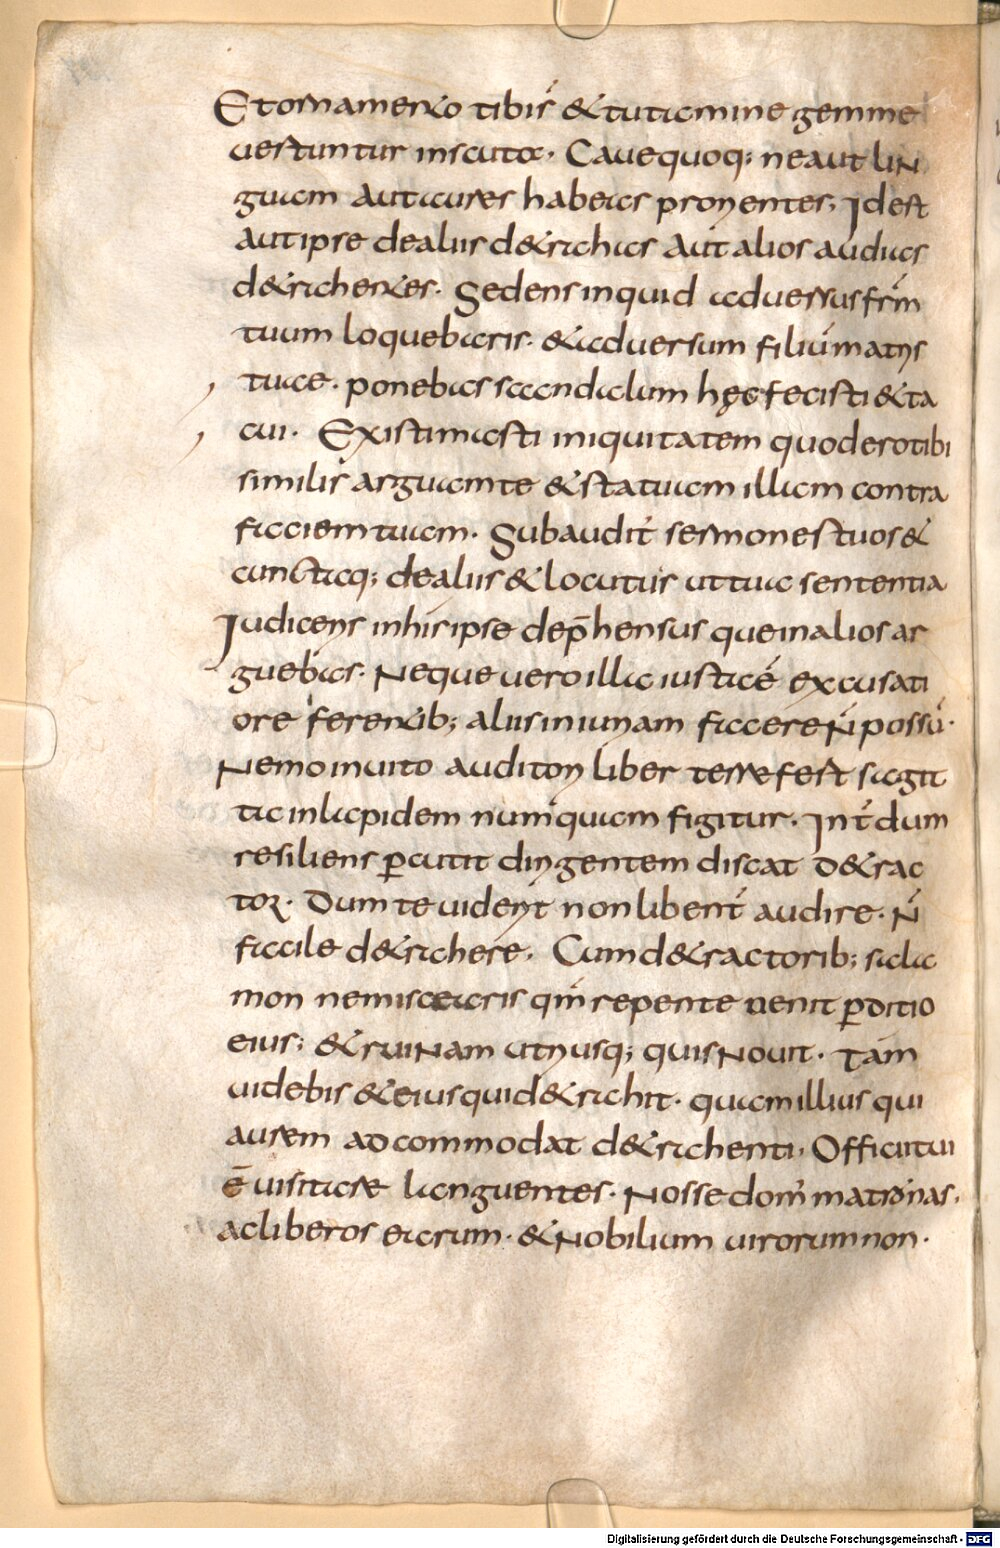 Et ornamento tibi s̄ & tutamine gemme
uertuntur in scuta. Caue quoq; ne aut lin
guam aut aures habeas prorientes, Id est
aut ipse de aliis detrahas Aut alios audias
detrahentes. Sedens inquid aduersus frm̄
tuum loquebaris. & aduersum filiū matris
tuae. ponebas scandalum hęc fecisti & ta
cui. Existimasti iniquitatem quod ero tibi
similis arguam te & statuam illam contra
faciem tuam. Subaudit̄ sermones tuos &
cunctaq; de aliis & locutus ut tua sententia
Iudiceris in his ipse dep̄hensus que in alios ar
guebas. Neque uero illa iusta ē excusati
ore ferentib; aliis iniuriam facere n̄ possū.
Nemo inuito auditori liber terre fert sagit
ta in lapidem numquam figitur. Int̄dum
resiliens ꝑcutit dirigentem discat detrac
tor. Dum te uiderit non libent̄ audire. n̄
facile detrahere. Cum detractorib; sala
mon ne misceacris qm̄ repente uenit ꝑditio
eius; & ruinam utriusq; quis nouit. Tam
uidebis & eius qui detrahit. quam illius qui
aurem adcommodat detrahenti. Officii tui
ē uisitare languentes. Nosse domꝰ matronas.
ac liberos earum. & nobilium uirorum non.
Digitalisierung gefördert durch die Deutsche Forschungsgemeinschaft - DFG